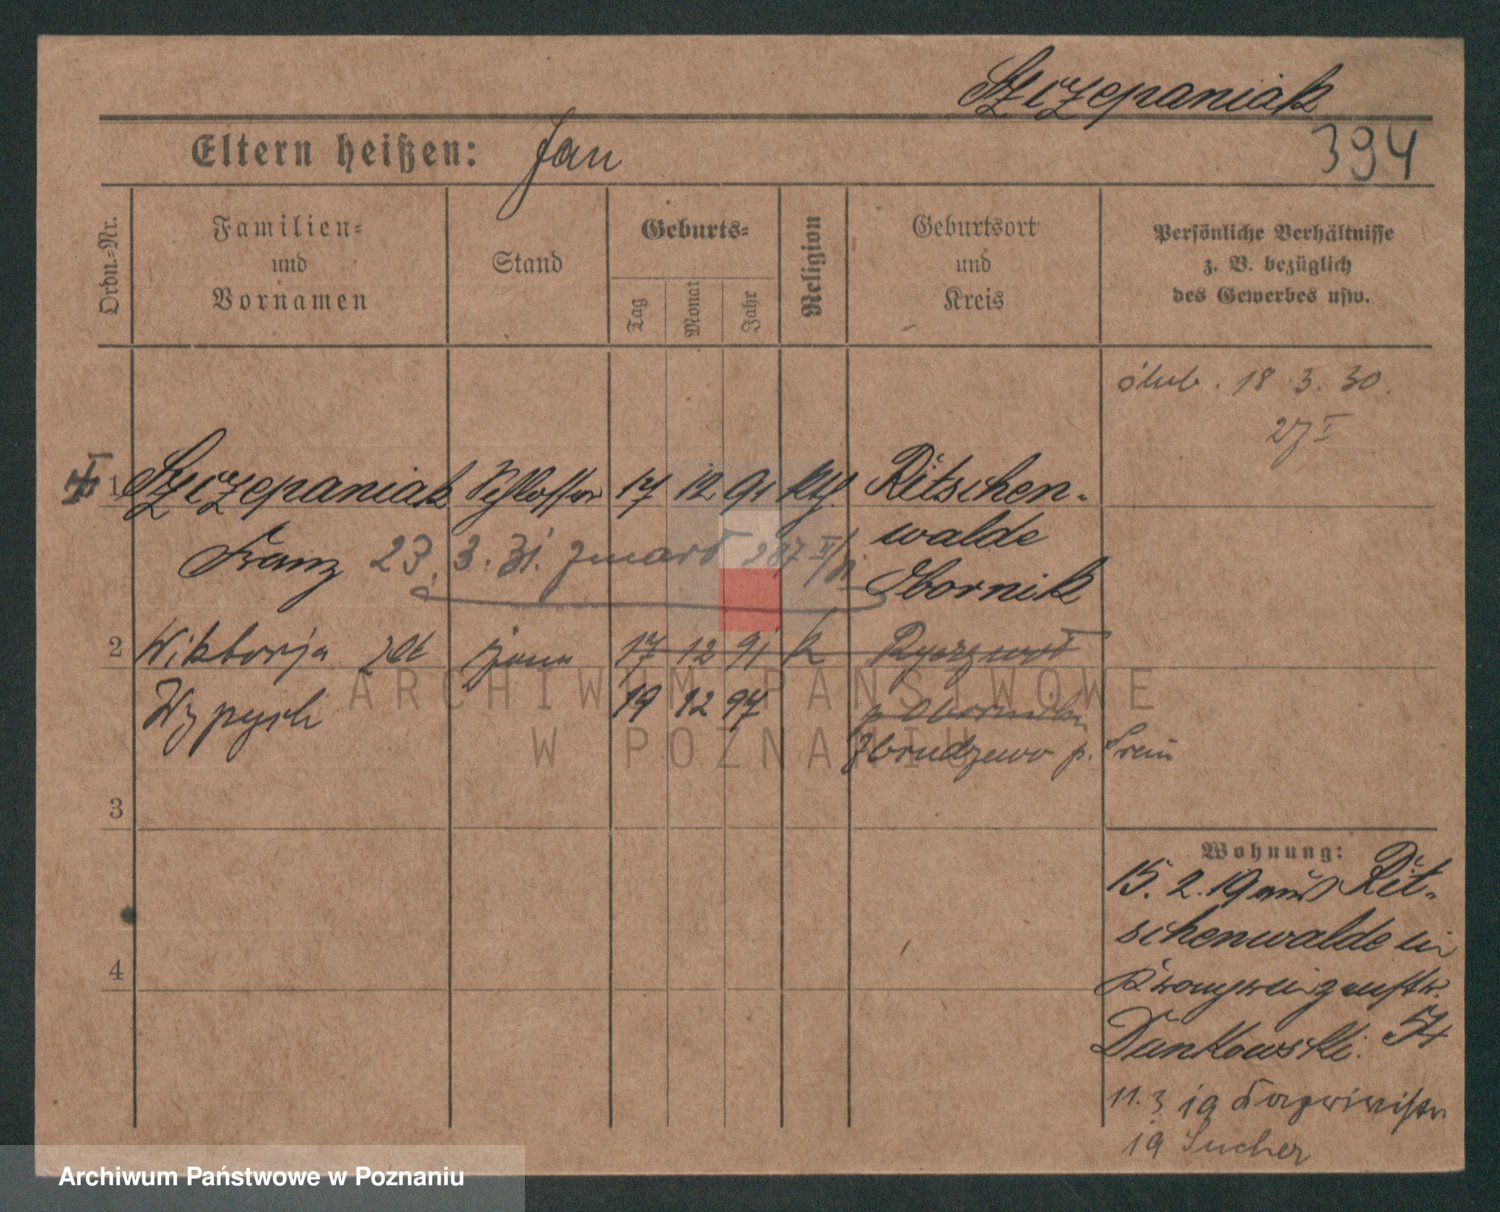 Szczepaniak
394
Eltern heißen: Jan
Ordn.-Nr.
Familien-
und
Vornamen
Stand
Geburts-
Tag
Monat
Jahr
Religion
Geburtsort
und
Kreis
Persönliche Verhältnisse
z. B. bezüglich
des Gewerbes usw.
ślub. 18.3.30.
27 I
1 Szczepaniak Schlosser 17 12 91 kth. Ritschen-
walde
Franz 23. 3. 31. zmarł 287 II/31 Obornik
2 Wiktorja żona 17 12 91 k Ryczywół
Wypych 19 12 97 p. Oborniki
Zbrudzewo p. Śrem
3
4
Wohnung:
15. 2. 19 aus Rit-
schenwalde in
Kronprinzenstr.
Dunkowski. 54
11. 3. 19
19 Sucher
ARCHIWUM PAŃSTWOWE
W POZNANIU
Archiwum Państwowe w Poznaniu